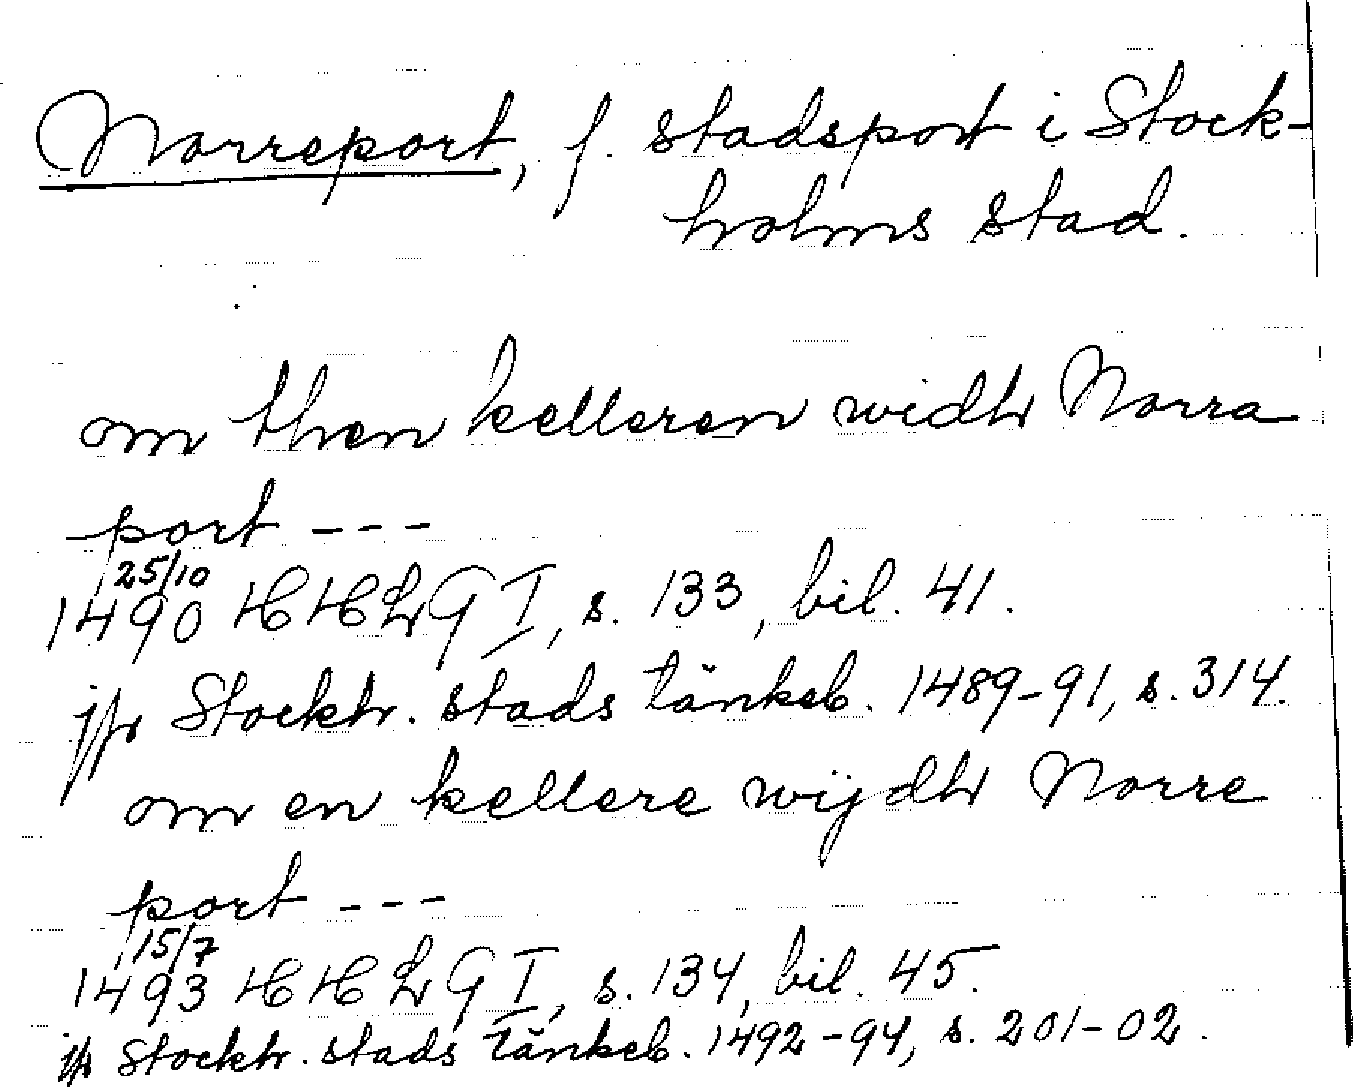 Norreport, f. stadsport i Stock-
holms stad.
om then kelleren widh Norra
port ---
25/10
1490 HHLG I, s. 133, bil. 41.
jfr Stockh. stads tänkeb. 1489-91, s. 314.
om en kellere wijdh Norre
port ---
15/7
1493 HHLG I, s. 134, bil. 45.
jfr Stockh. stads tänkeb. 1492-94, s. 201-02.